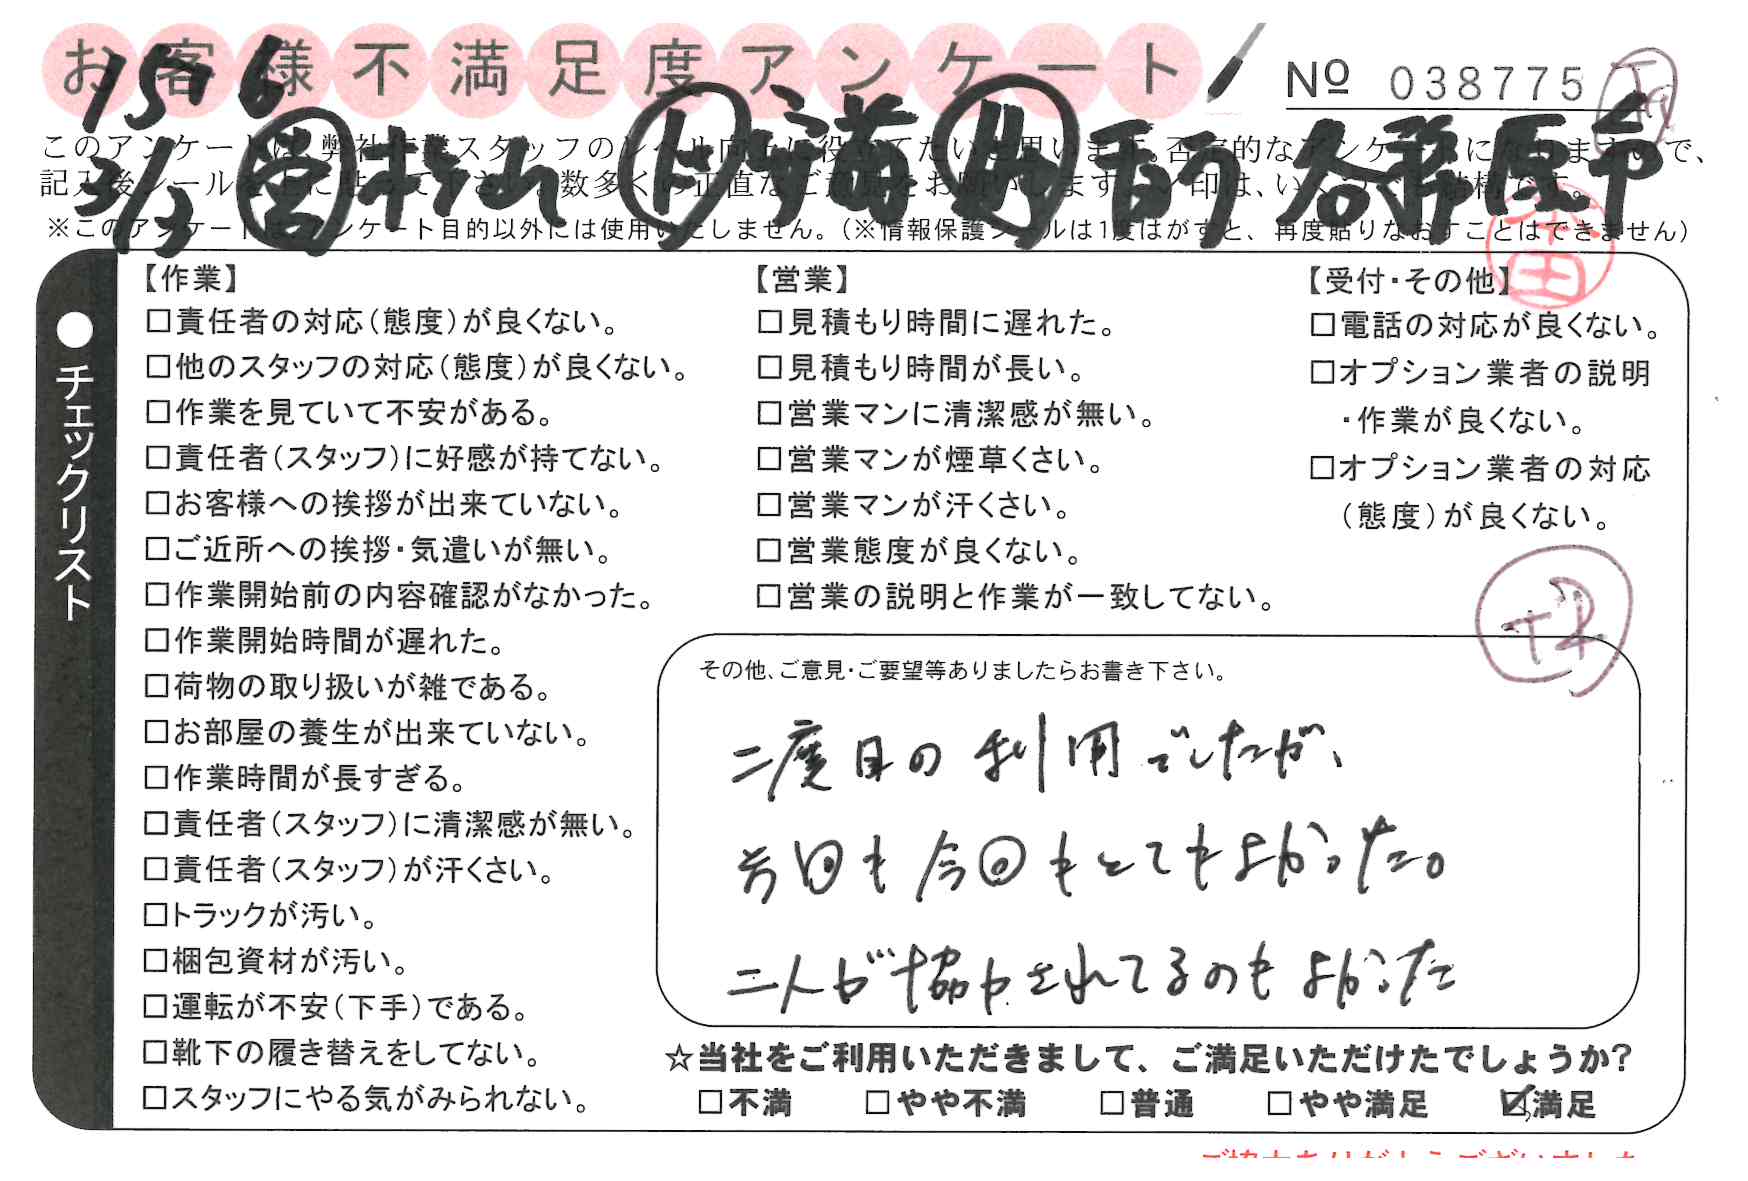 お客様不満足度アンケート
No 038775
156
3/3 営 杉山 各務原市
※このアンケートはアンケート目的以外には使用いたしません。（※情報保護シールは1度はがすと、再度貼りなおすことはできません）
●チェックリスト
【作業】
□責任者の対応（態度）が良くない。
□他のスタッフの対応（態度）が良くない。
□作業を見ていて不安がある。
□責任者（スタッフ）に好感が持てない。
□お客様への挨拶が出来ていない。
□ご近所への挨拶・気遣いが無い。
□作業開始前の内容確認がなかった。
□作業開始時間が遅れた。
□荷物の取り扱いが雑である。
□お部屋の養生が出来ていない。
□作業時間が長すぎる。
□責任者（スタッフ）に清潔感が無い。
□責任者（スタッフ）が汗くさい。
□トラックが汚い。
□梱包資材が汚い。
□運転が不安（下手）である。
□靴下の履き替えをしてない。
□スタッフにやる気がみられない。
【営業】
□見積もり時間に遅れた。
□見積もり時間が長い。
□営業マンに清潔感が無い。
□営業マンが煙草くさい。
□営業マンが汗くさい。
□営業態度が良くない。
□営業の説明と作業が一致してない。
【受付・その他】
□電話の対応が良くない。
□オプション業者の説明
・作業が良くない。
□オプション業者の対応
（態度）が良くない。
その他、ご意見・ご要望等ありましたらお書き下さい。
二度目の利用でしたが、
前回も今回もとてもよかった。
二人が協力されてるのもよかった
☆当社をご利用いただきまして、ご満足いただけたでしょうか？
□不満 □やや不満 □普通 □やや満足 ☑満足